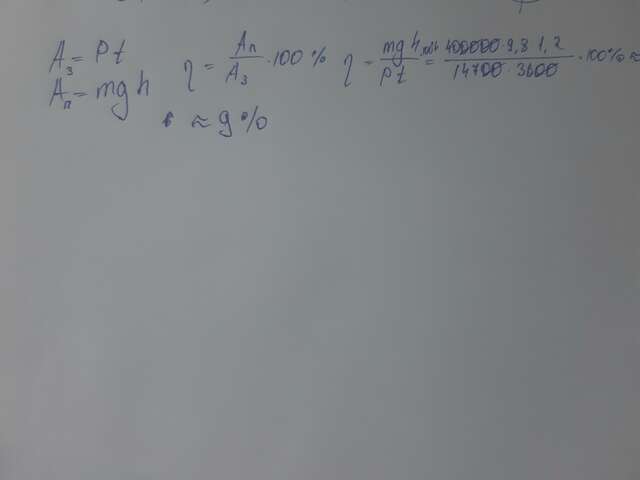 Aз = Pt
Aп = mgh
η = Aп/Aз · 100 %
η = mgh/Pt = 400000 · 9,8 1,2/14700 · 3600 · 100% ≈
≈ 9%